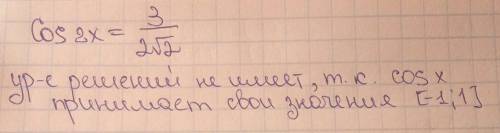 Cos 2x = 3/2√2
ур-е решений не имеет, т.к. cos x
принимает свои значения [-1;1]